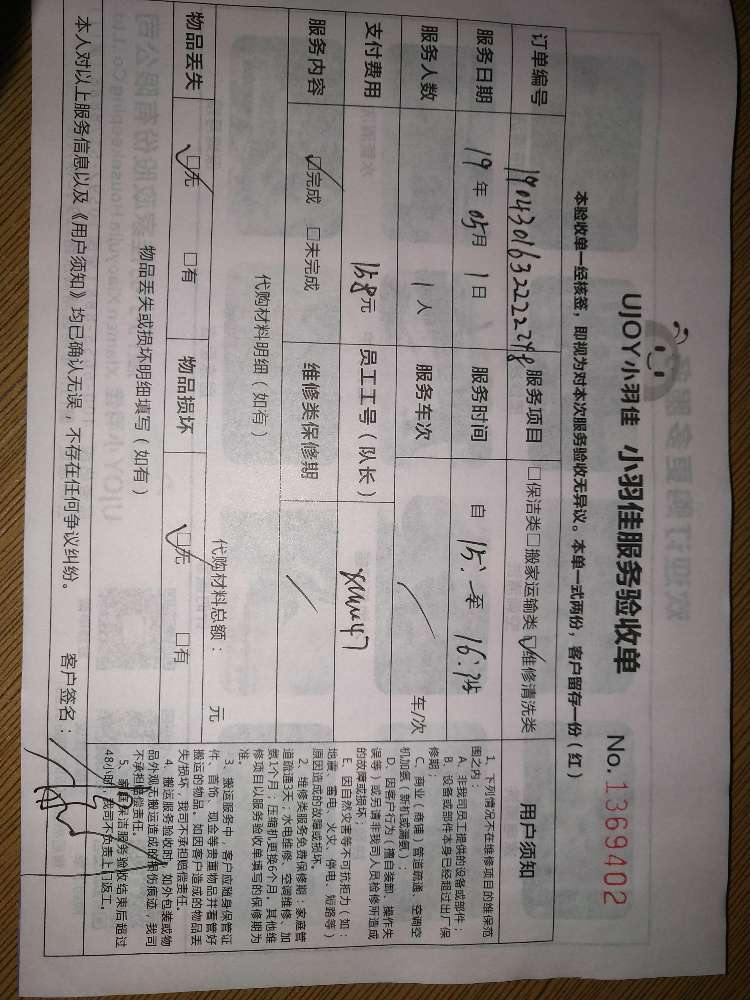 UJOY小羽佳 小羽佳服务验收单 No. 1369402
本验收单一经核签，即视为对本次服务验收无异议。本单一式两份，客户留存一份（红）
订单编号 服务项目 □保洁类□搬家运输类☑维修清洗类
服务日期 19年 05月 1日 服务时间 自 至
服务人数 1人 服务车次 / 车/次
支付费用 168元 员工工号（队长）
服务内容 ☑完成 □未完成 维修类保修期 /
代购材料明细（如有）
代购材料总额： 元
物品丢失 ☑无 □有 物品损坏 ☑无 □有
物品丢失或损坏明细填写（如有）
用户须知
1、下列情况不在维修项目的维保范
围之内：
A、非我司员工提供的设备或部件；
B、设备或部件本身已经超过出厂保
修期；
C、商业（商铺）管道疏通、空调空
机加氨（新机或漏氨）；
D、因客户行为（擅自装卸、操作失
误等）或另请非我司人员检修所造成
的故障或损坏；
E、因自然灾害等不可抗拒力（如：
地震、雷电、火灾、停电、短路等）
原因造成的故障或损坏。
2、维修类服务免费保修期：家庭管
道疏通3天；水电维修、空调维修、加
氨1个月；压缩机更换6个月。其他维
修项目以服务验收单填写的保修期为
准。
3、搬运服务中，客户应随身保管证
件、首饰、现金等贵重物品并看管好
搬运的物品。如因客户造成的物品丢
失损坏，我司不承担赔偿责任。
4、搬运服务验收时，如外包装或物
品外观无搬运造成的损伤痕迹，我司
不承担赔偿责任。
5、家庭保洁服务验收结束后超过
48小时，我司不负责上门返工。
本人对以上服务信息以及《用户须知》均已确认无误，不存在任何争议纠纷。 客户签名：